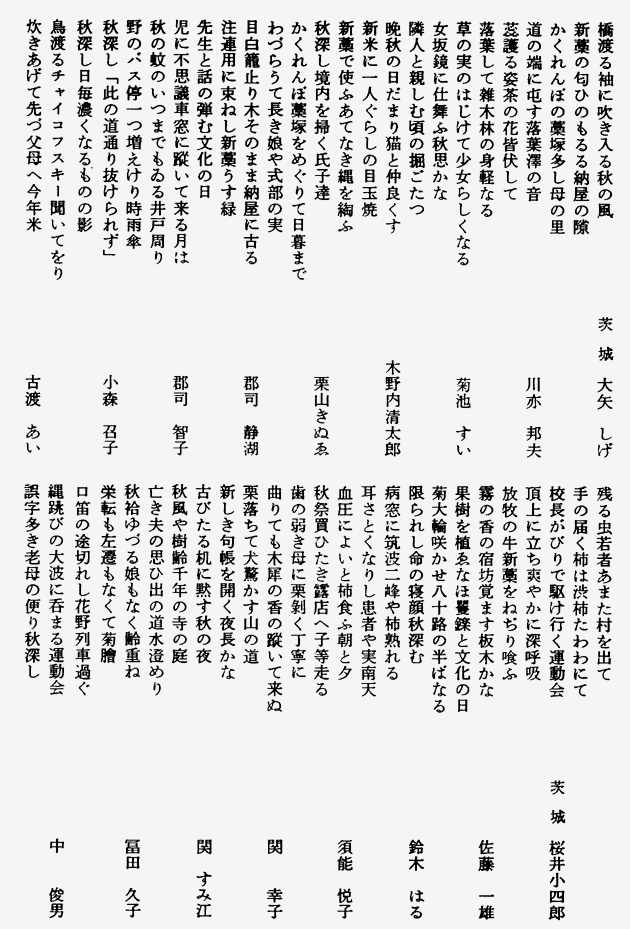 橋渡る袖に吹き入る秋の風
新藁の匂ひのもるる納屋の隙
かくれんぼの藁塚多し母の里
茨城 大矢 しげ
道の端に屯す落葉澤の音
蕊護る姿茶の花皆伏して
落葉して雑木林の身軽なる
川亦 邦夫
草の実のはじけて少女らしくなる
女坂鏡に仕舞ふ秋思かな
隣人と親しむ頃の掘ごたつ
菊池 すい
晩秋の日だまり猫と仲良くす
新米に一人ぐらしの目玉焼
新藁で使ふあてなき縄を綯ふ
木野内清太郎
秋深し境内を掃く氏子達
かくれんぼ藁塚をめぐりて日暮まで
わづらうて長き娘や式部の実
栗山きぬゑ
目白籠止り木そのまま納屋に古る
注連用に束ねし新藁うす緑
先生と話の弾む文化の日
郡司 静湖
児に不思議車窓に蹤いて来る月は
秋の蚊のいつまでもゐる井戸周り
野のバス停一つ増えけり時雨傘
郡司 智子
秋深し「此の道通り抜けられず」
秋深し日毎濃くなるものの影
鳥渡るチャイコフスキー聞いてをり
小森 召子
炊きあげて先づ父母へ今年米
古渡 あい
残る虫若者あまた村を出て
手の届く柿は渋柿たわわにて
校長がびりで駆け行く運動会
茨城 桜井小四郎
頂上に立ち爽やかに深呼吸
放牧の牛新藁をねぢり喰ふ
霧の香の宿坊覚ます板木かな
佐藤 一雄
果樹を植ゑなほ矍鑠と文化の日
菊大輪咲かせ八十路の半ばなる
限られし命の寝顔秋深む
鈴木 はる
病窓に筑波二峰や柿熟れる
耳さとくなりし患者や実南天
血圧によいと柿食ふ朝と夕
須能 悦子
秋祭買ひたき露店へ子等走る
歯の弱き母に栗剥く丁寧に
曲りても木犀の香の蹤いて来ぬ
関 幸子
栗落ちて犬驚かす山の道
新しき句帳を開く夜長かな
古びたる机に黙す秋の夜
関 すみ江
秋風や樹齢千年の寺の庭
亡き夫の思ひ出の道水澄めり
秋袷ゆづる娘もなく齢重ね
冨田 久子
栄転も左遷もなくて菊膾
口笛の途切れし花野列車過ぐ
縄跳びの大波に呑まる運動会
中 俊男
誤字多き老母の便り秋深し